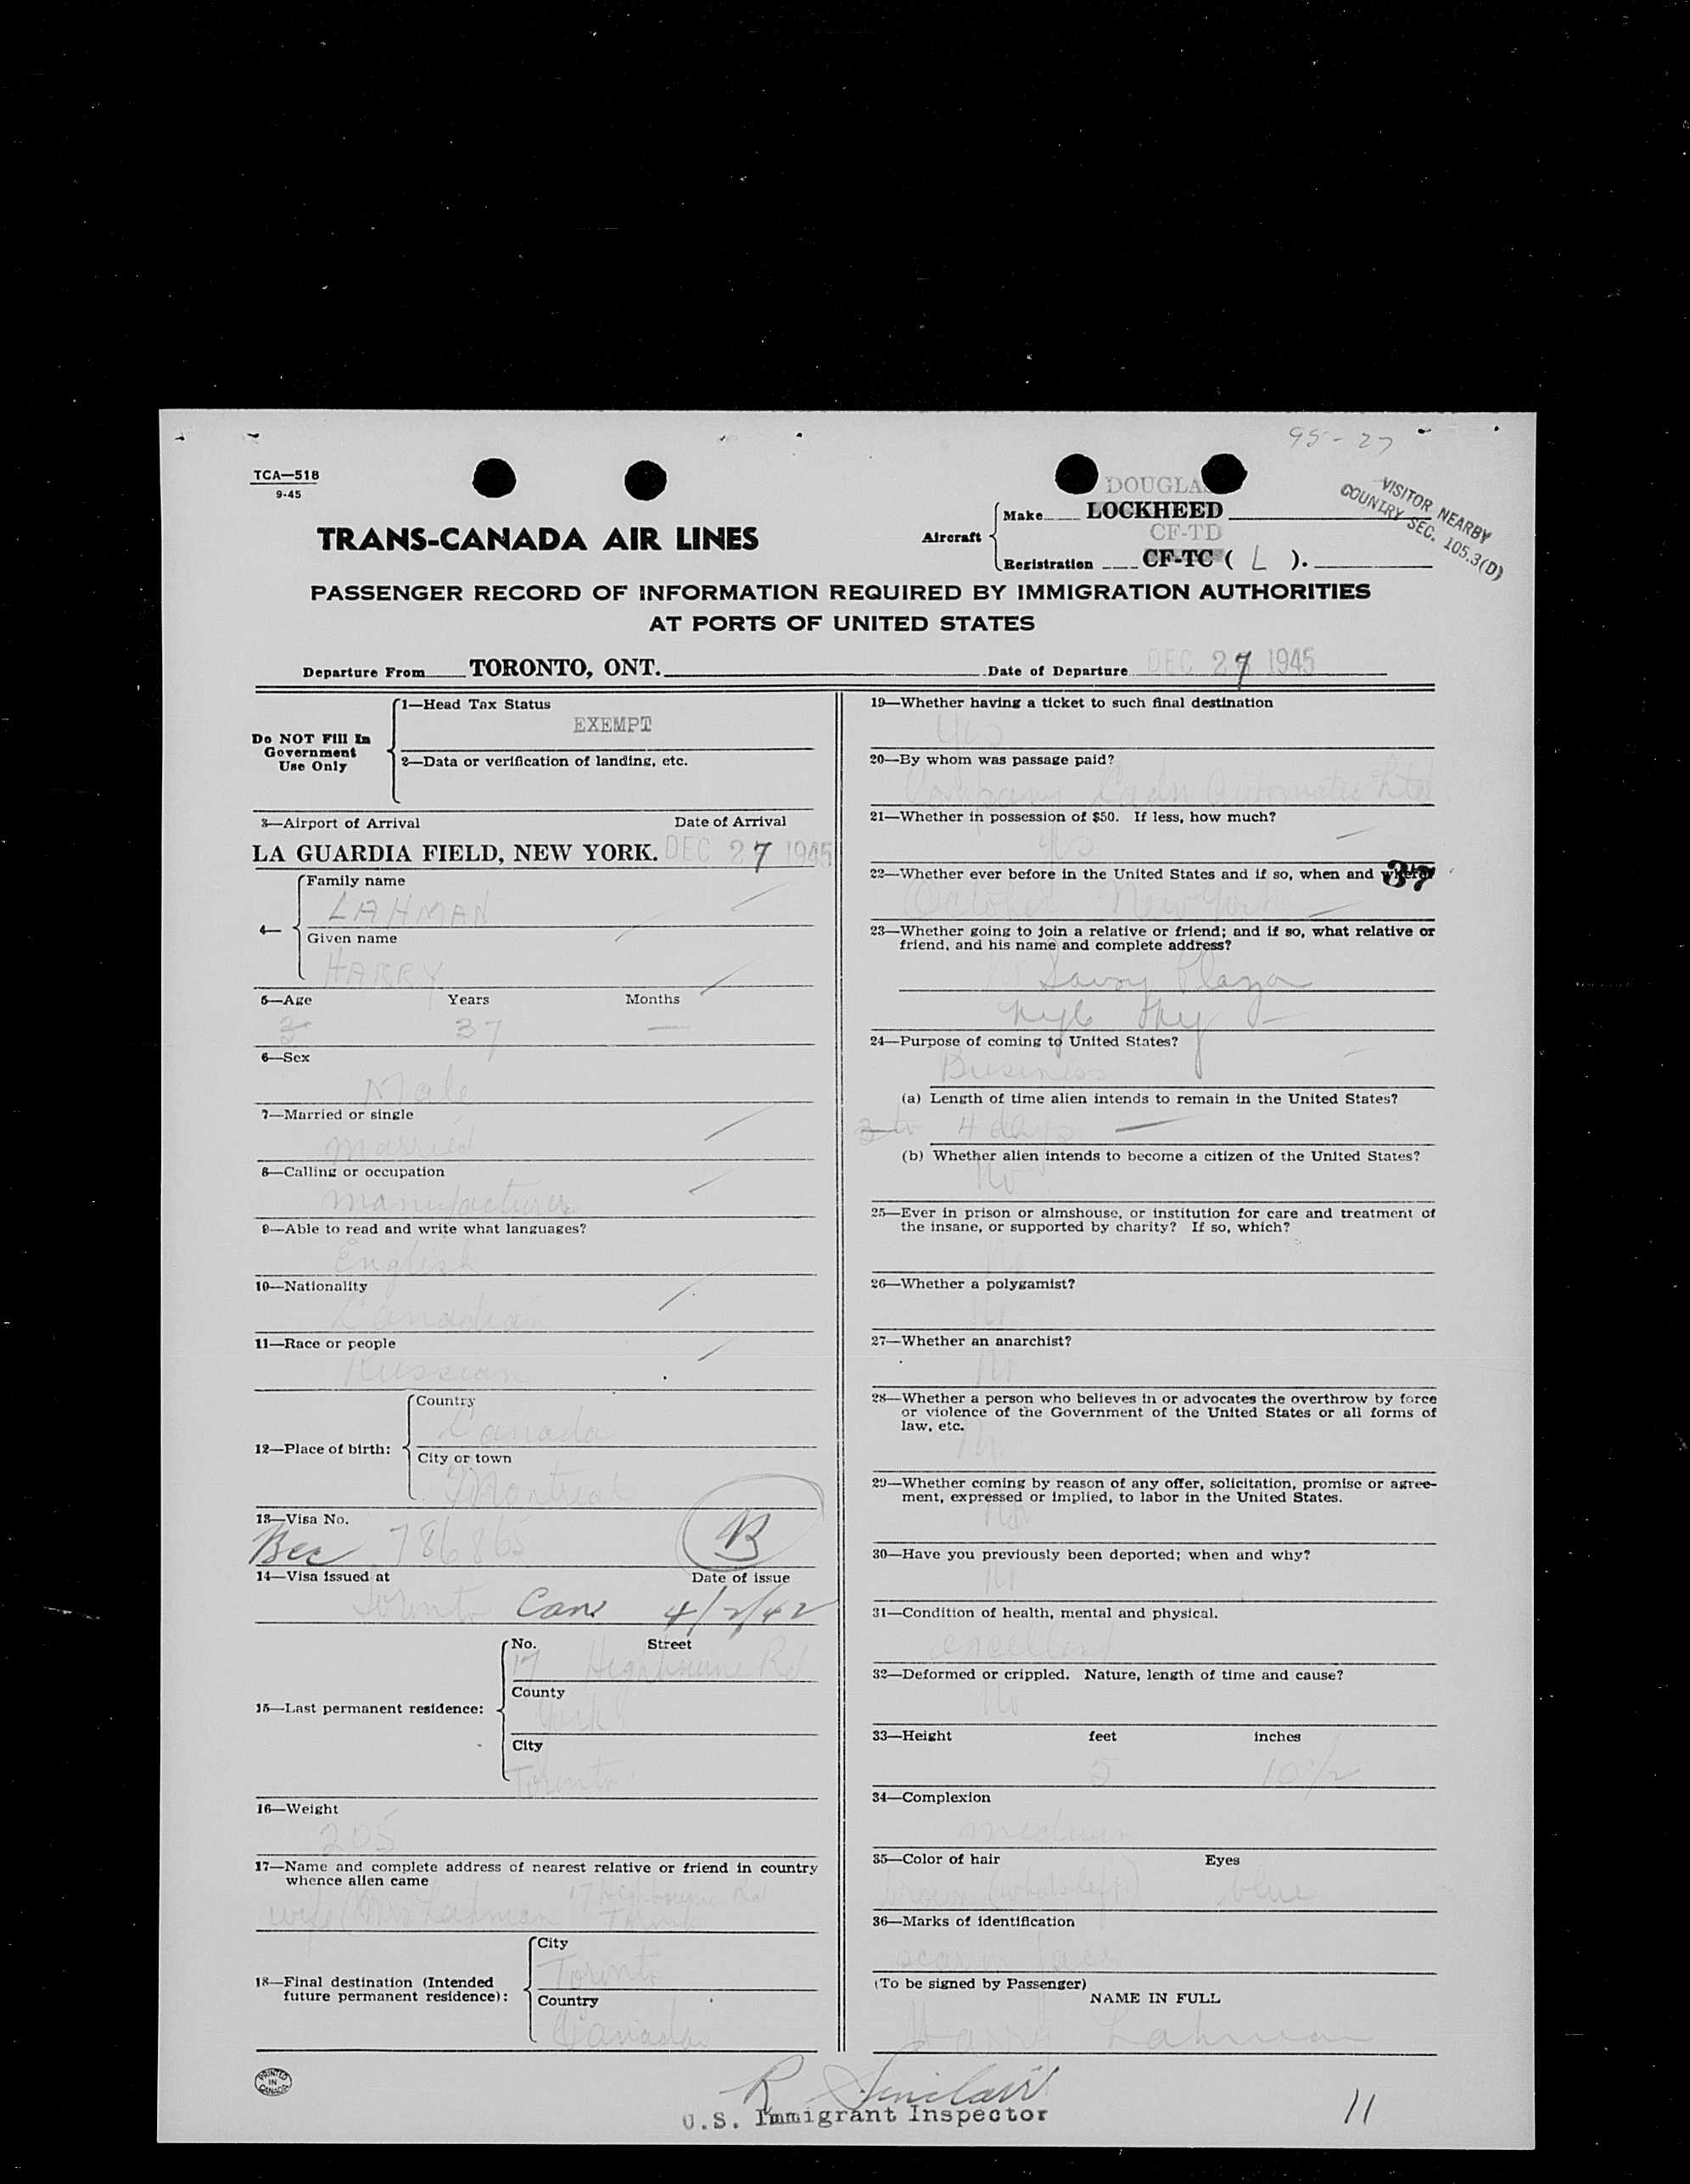 95-27
TCA—518
9-45
VISITOR NEARBY
COUNTRY SEC. 105.3(D)
DOUGLAS
TRANS-CANADA AIR LINES
Aircraft
Make LOCKHEED
CF-TD
Registration CF-TC ( L ).
PASSENGER RECORD OF INFORMATION REQUIRED BY IMMIGRATION AUTHORITIES
AT PORTS OF UNITED STATES
Departure From TORONTO, ONT. Date of Departure DEC 27 1945
Do NOT Fill In
Government
Use Only
1—Head Tax Status
EXEMPT
2—Data or verification of landing, etc.
3—Airport of Arrival Date of Arrival
LA GUARDIA FIELD, NEW YORK. DEC 27 1945
4—
Family name
LAHMAN
Given name
HARRY
5—Age Years Months
37 —
6—Sex
Male
7—Married or single
Married
8—Calling or occupation
manufacturer
9—Able to read and write what languages?
English
10—Nationality
Canadian
11—Race or people
Russian
12—Place of birth:
Country
Canada
City or town
Montreal
13—Visa No.
Bcc 786865 B
14—Visa issued at Date of issue
Toronto Can 4/2/42
15—Last permanent residence:
No. Street
17 Highbourne Rd
County
York
City
Toronto
16—Weight
205
17—Name and complete address of nearest relative or friend in country
whence alien came
17 Highbourne Rd
wife Mrs Lahman Toronto
18—Final destination (Intended
future permanent residence):
City
Toronto
Country
Canada
19—Whether having a ticket to such final destination
Yes
20—By whom was passage paid?
Company Cadn Automatic Ltd
21—Whether in possession of $50. If less, how much?
yes
22—Whether ever before in the United States and if so, when and where?
37
October New York
23—Whether going to join a relative or friend; and if so, what relative or
friend, and his name and complete address?
Savoy Plaza
nyc ny
24—Purpose of coming to United States?
Business
(a) Length of time alien intends to remain in the United States?
3 to 4 days
(b) Whether alien intends to become a citizen of the United States?
No
25—Ever in prison or almshouse, or institution for care and treatment of
the insane, or supported by charity? If so, which?
No
26—Whether a polygamist?
No
27—Whether an anarchist?
No
28—Whether a person who believes in or advocates the overthrow by force
or violence of the Government of the United States or all forms of
law, etc.
No
29—Whether coming by reason of any offer, solicitation, promise or agree-
ment, expressed or implied, to labor in the United States.
No
30—Have you previously been deported; when and why?
No
31—Condition of health, mental and physical.
excellent
32—Deformed or crippled. Nature, length of time and cause?
No
33—Height feet inches
5 10½
34—Complexion
medium
35—Color of hair Eyes
brown (whats left) blue
36—Marks of identification
scar on face
(To be signed by Passenger)
NAME IN FULL
Harry Lahman
PRINTED
IN
CANADA
R Sinclair
U.S. Immigrant Inspector
11